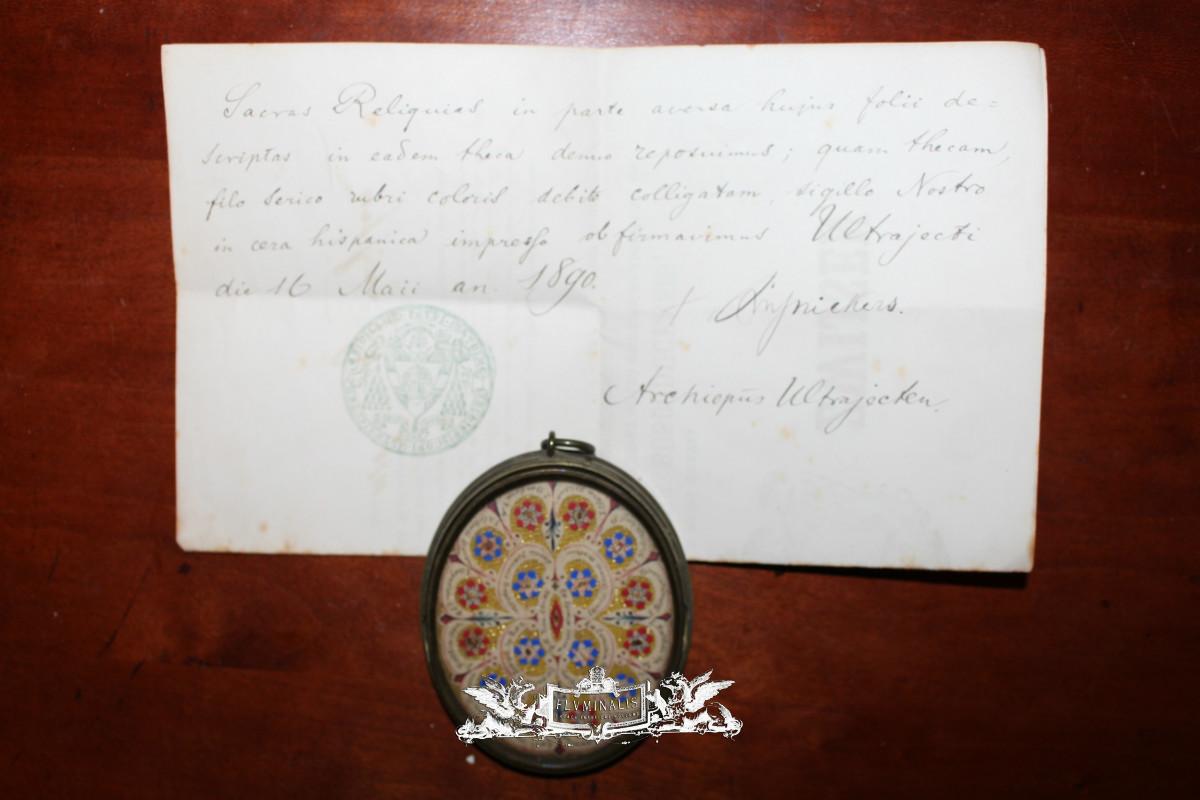 Sacras Reliquias in parte aversa hujus folii de=
scriptas in eadem theca denuo reposuimus; quam thecam,
filo serico rubri coloris debite colligatam, sigillo Nostro
in cera hispanica impresso obfirmavimus Ultrajecti
die 16 Maii an. 1890.
Archiepũs Ultrajecten.
FLVMINALIS